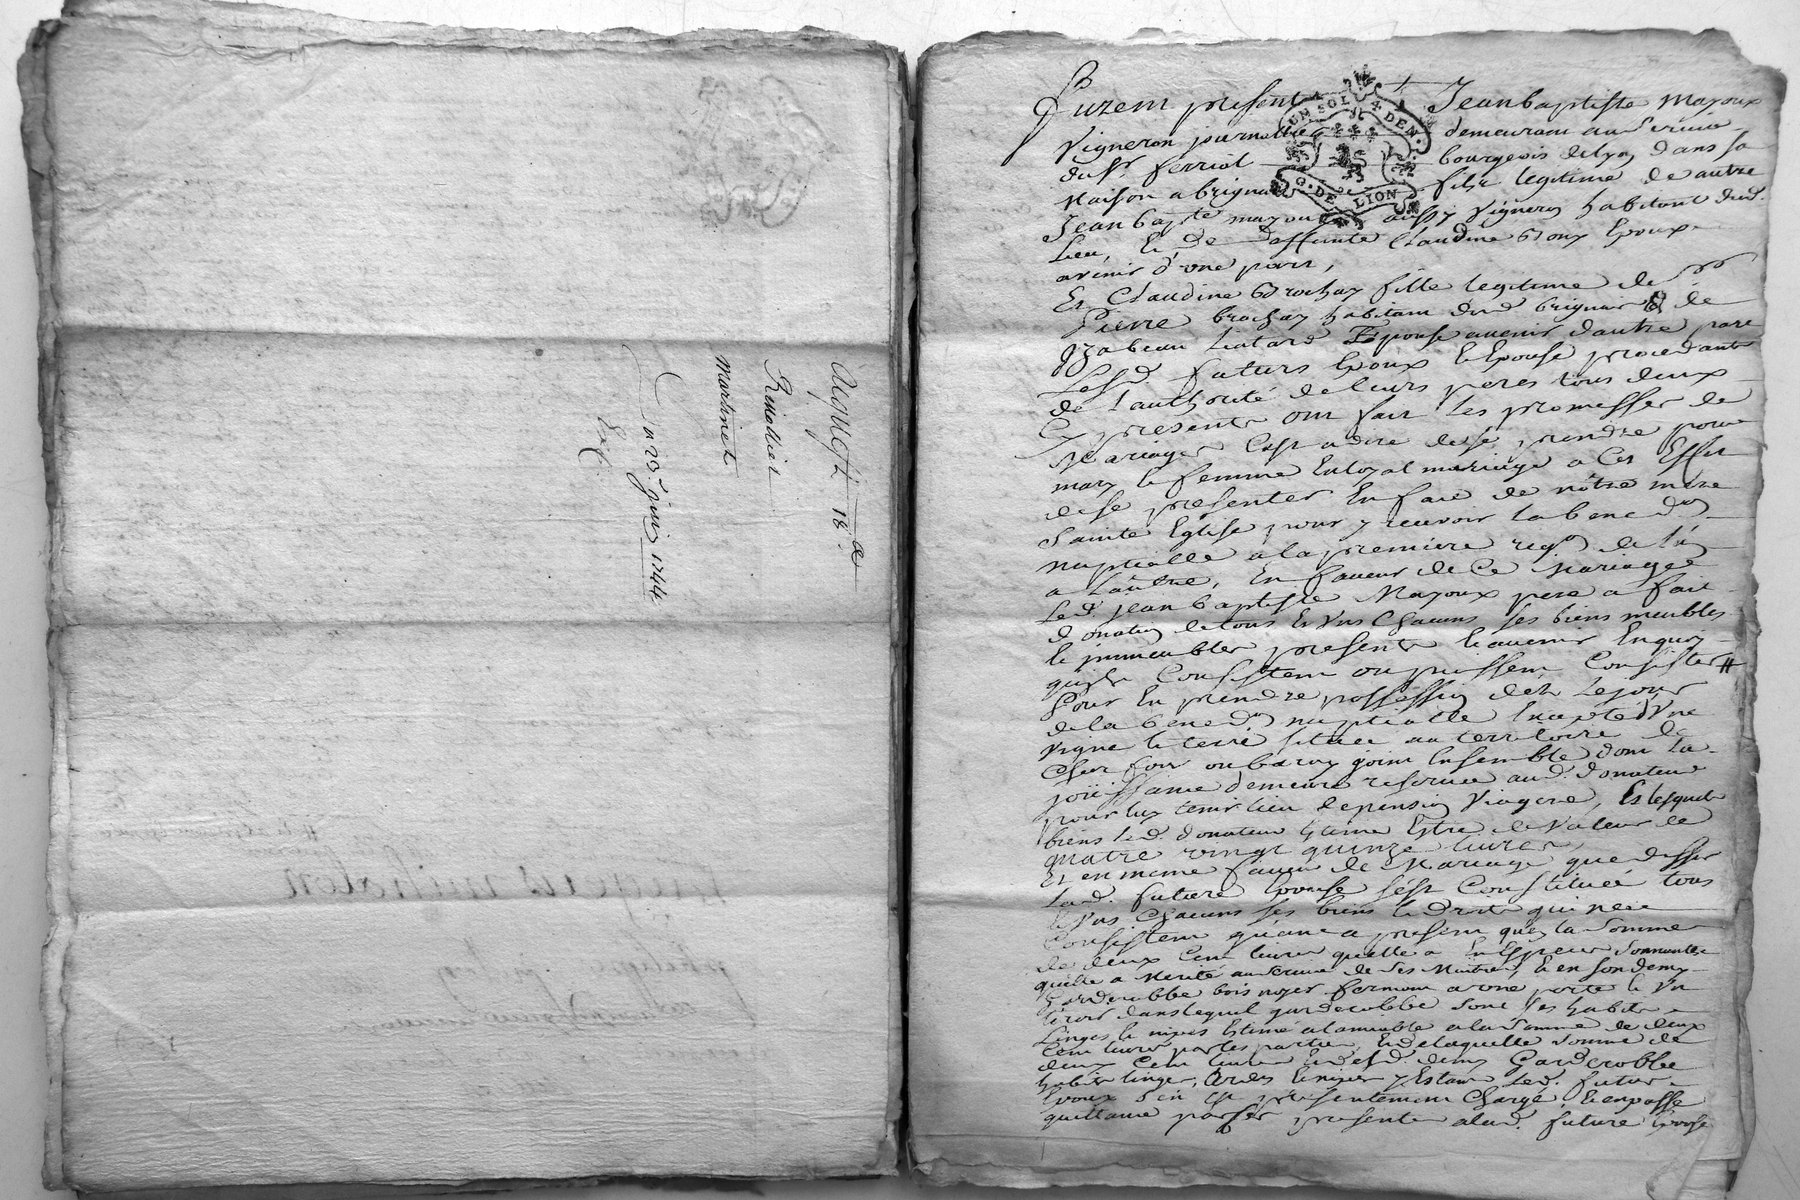 acquest 18
Rivollier
Martinet
23 juin 1744
Furent présent Jean baptiste mazoux
Vigneron journallier demeurant au service
du Sr ferriol bourgeois de lyon dans sa
Maison a brignais fils legitime de autre
Jean bapte mazoux aussy vigneron habitant dud.
Lieu, et de deffunte Claudine Epoux
avenir d'une part,
UN SOL 4 DEN.
G. DE LION
Et Claudine Brochay fille legitime de
Pierre brochay habitant dud brignais et de
Yzabeau Liatard Epouse avenir d'autre part
Lesd. futurs Epoux et Epouse procedants
de l'authorité de leurs peres tous deux
Cy presents ont fait les promesses de
Mariages C'est a dire de se prendre pour
mary et femme En loyal mariage a Cet Effet
de se presenter En face de nôtre mere
Sainte Eglise pour y recevoir la bene don
nuptialle a la premiere reqon de l'un
a l'autre, En faveur de Ce Mariage
Led. jean baptiste Mazoux pere a fait
donation de tous Et Uns Chacuns ses biens meubles
et immeubles presents et avenir En quoy
qu'ils Consistent ou puissent Consister #
Pour En prendre possession des Le jour
de la bene don nuptialle Excepté Une
vigne et terre scituée au territoire de
joint Ensemble dont la
joüissance demeure reservée aud. donateur
pour luy tenir lieu de pension Viagere, Et lesquels
biens led. donateur Estime Estre de Valeur de
quatre vingt quinze livres,
Et en meme faveur de Mariage que dessus
Lad. future Epouse s'est Constituée tous
et Uns Chacuns ses biens et droits qui ne
Consistent quant a present qu'en la Somme
de deux Cent livres qu'elle a En Especes Sonnantes
qu'elle a Merité au service de ses Maitres, et en son demy
garderobbe bois noyer fermant a une porte et Un
tiroir dans lequel garderobbe sont ses habits
Linges et nipes Estimé a l'amiable a la somme de deux
Cent livres par les parties, Et de laquelle somme de
deux Cent livres Et desd. demy Garderobbe
habits linges, hardes et nipes y Estant Led. futur
Epoux s'en Est presentement Chargé, et en passe
quittance par ses presentes a lad. future Epouse